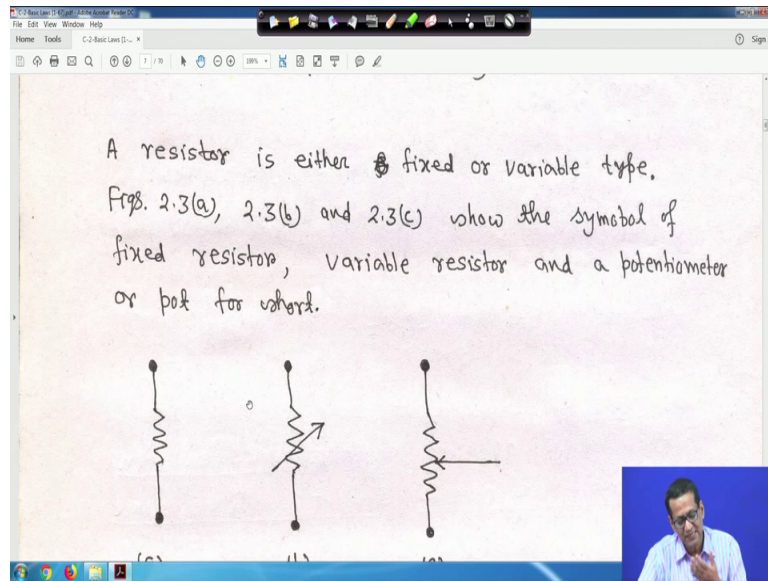 C-2-Basic Laws [1-67].pdf - Adobe Acrobat Reader DC
File Edit View Window Help
Home Tools C-2-Basic Laws [1-... ×
Sign
7 / 70
199%
A resistor is either fixed or variable type.
Figs. 2.3(a), 2.3(b) and 2.3(c) show the symobol of
fixed resistor, variable resistor and a potentiometer
or pot for short.